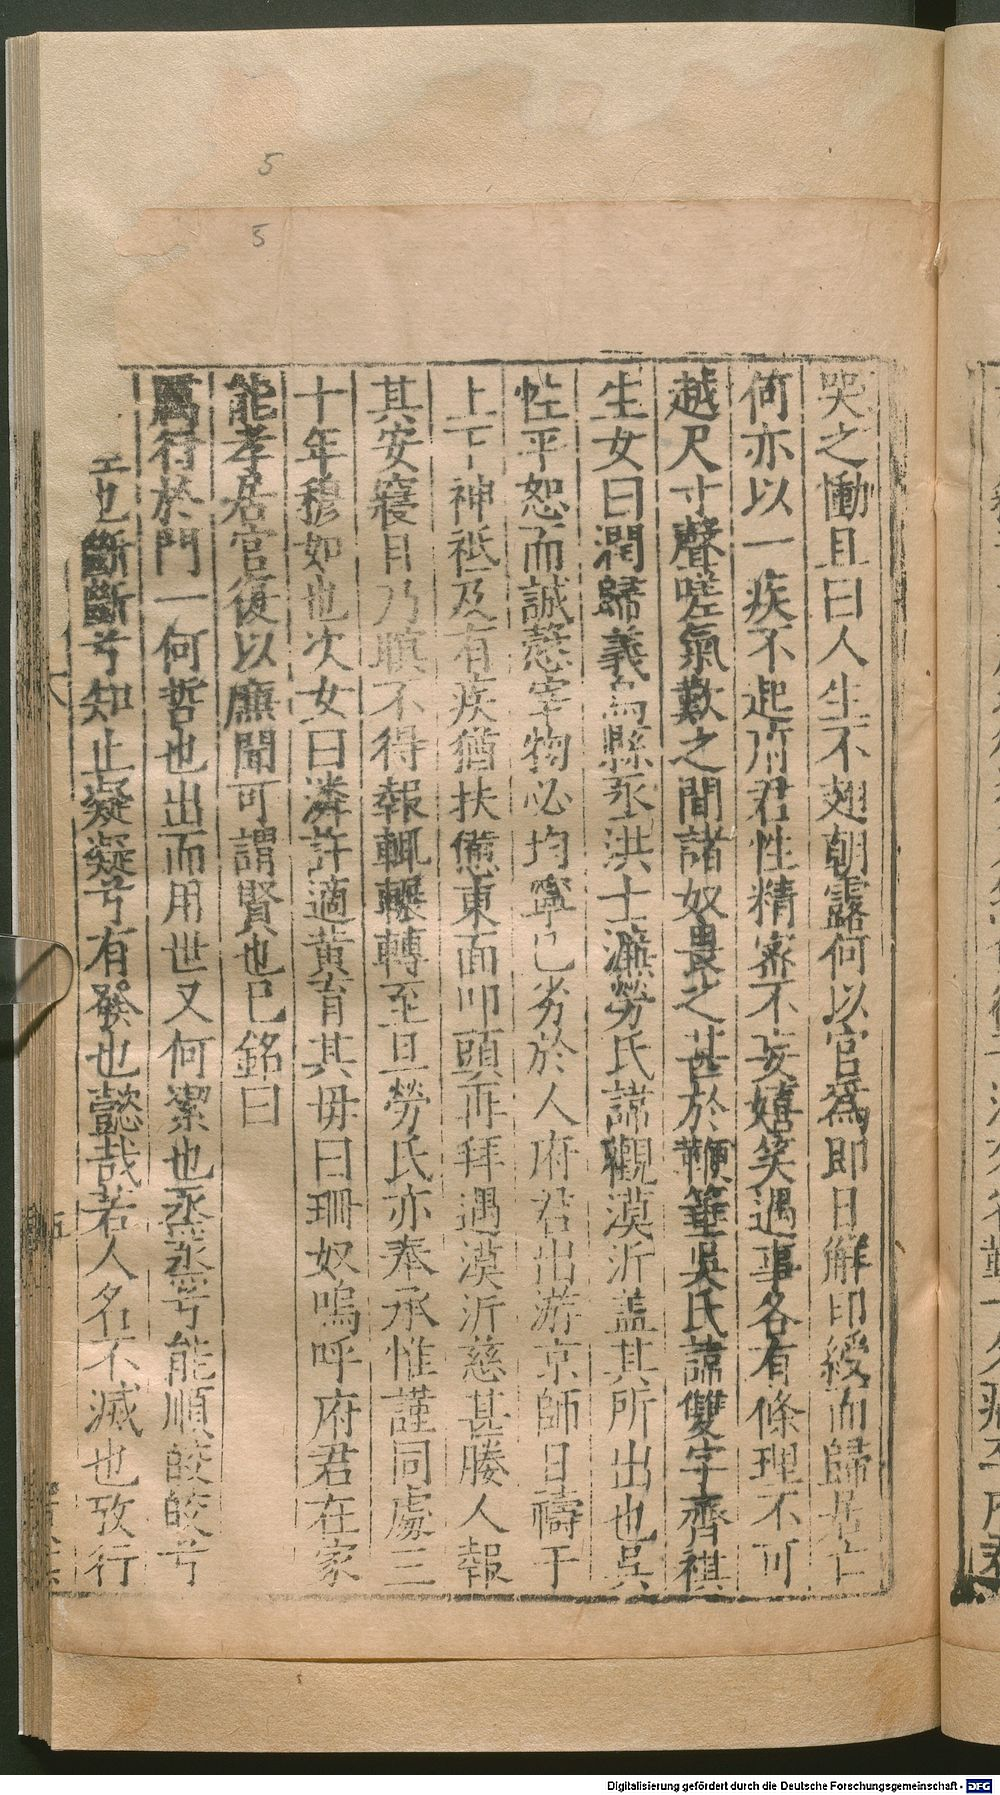 5
5
哭之慟且曰人生不翅朝露何以官爲即日解印綬而歸居亡
何亦以一疾不起府君性精審不妄嬉笑遇事各有條理不可
越尺寸聲嗟氣歎之間諸奴畏之甚於鞭箠吳氏諱雙字齊祺
生女曰潤歸義烏縣丞洪士濂勞氏諱觀漠沂蓋其所出也吳
性平恕而誠慤宰物必均寧已劣於人府君出游京師日禱于
上下神祗及有疾猶扶憊東面叩頭再拜遇漠沂慈甚媵人報
其安寢目乃瞋不得報輒輾轉至旦勞氏亦奉承惟謹同處三
十年穆如也次女曰潾許適黃育其毋曰珊奴嗚呼府君在家
能孝居官復以廉聞可謂賢也已銘曰
厲行於門一何哲也出而用世又何潔也烝烝兮能順皎皎兮
也斷斷兮知止凝凝兮有發也懿哉若人名不滅也攷行
五
Digitalisierung gefördert durch die Deutsche Forschungsgemeinschaft - DFG